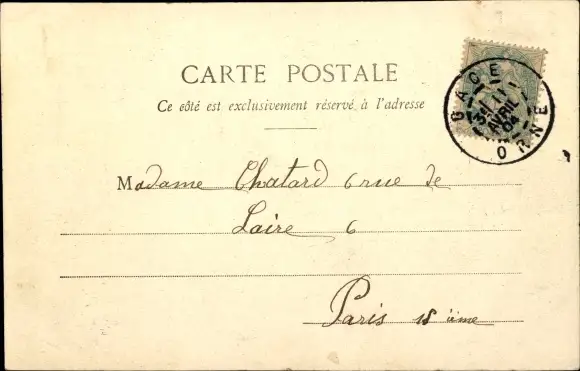 CARTE POSTALE
Ce côté est exclusivement réservé à l'adresse
GACE
3E 11
AVRIL
04
ORNE
Madame Chatard 6 rue de
Laire 6
Paris 18 ième